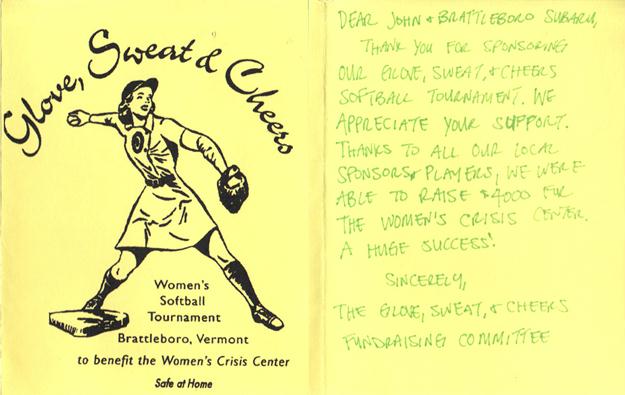 Glove, Sweat & Cheers
Women's
Softball
Tournament
Brattleboro, Vermont
to benefit the Women's Crisis Center
Safe at Home
DEAR JOHN & BRATTLEBORO SUBARU,
THANK YOU FOR SPONSORING
OUR GLOVE, SWEAT, & CHEERS
SOFTBALL TOURNAMENT. WE
APPRECIATE YOUR SUPPORT.
THANKS TO ALL OUR LOCAL
SPONSORS & PLAYERS, WE WERE
ABLE TO RAISE $4000 FOR
THE WOMEN'S CRISIS CENTER.
A HUGE SUCCESS!
SINCERELY,
THE GLOVE, SWEAT, & CHEERS
FUNDRAISING COMMITTEE